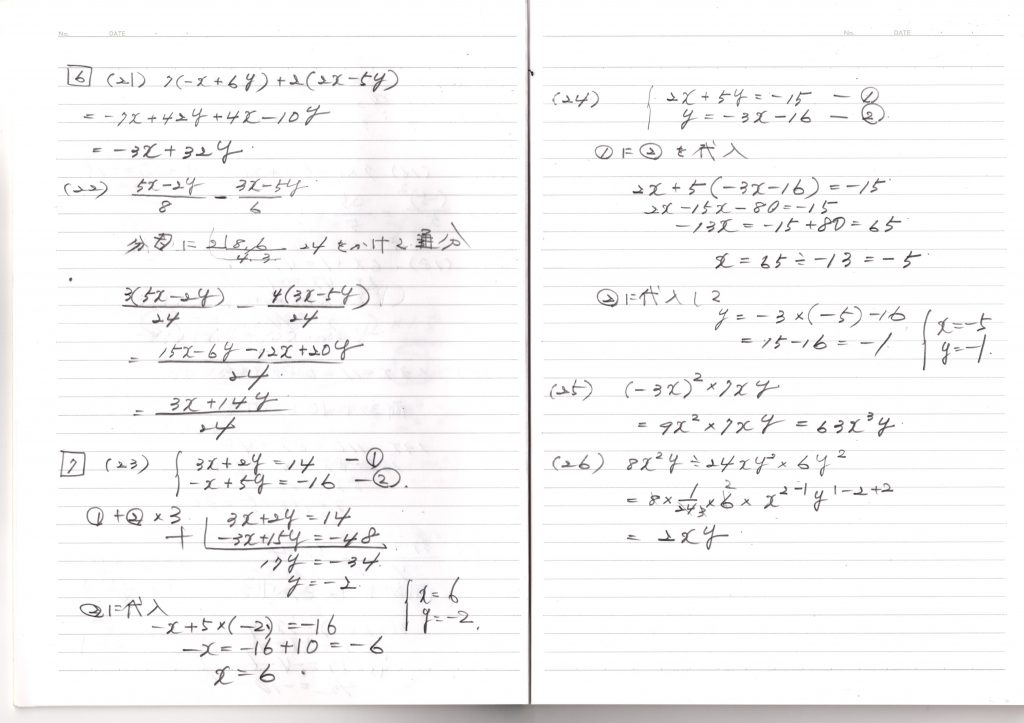 No. DATE
6 (21) 7(-x+6y)+2(2x-5y)
= -7x+42y+4x-10y
= -3x+32y.
(22) (5x-2y)/8 - (3x-5y)/6
分母に 2)8,6 24をかけて通分
4.3
3(5x-2y)/24 - 4(3x-5y)/24
= (15x-6y-12x+20y)/24
= (3x+14y)/24
7 (23) { 3x+2y=14 -①
-x+5y=-16 -②.
①+②×3 3x+2y=14
+ -3x+15y=-48
17y=-34.
y=-2.
②に代入
-x+5×(-2)=-16
-x=-16+10=-6
x=6.
{ x=6
y=-2.
No. DATE
(24) { 2x+5y=-15 -①
y=-3x-16 -②
①に②を代入
2x+5(-3x-16)=-15
2x-15x-80=-15
-13x=-15+80=65
x=65÷-13=-5
②に代入して
y=-3×(-5)-16
=15-16=-1
{ x=-5
y=-1.
(25) (-3x)²×7xy
= 9x²×7xy = 63x³y.
(26) 8x²y÷24xy²×6y²
= 8×1/24 3×6 2×x²⁻¹y¹⁻²⁺²
= 2xy